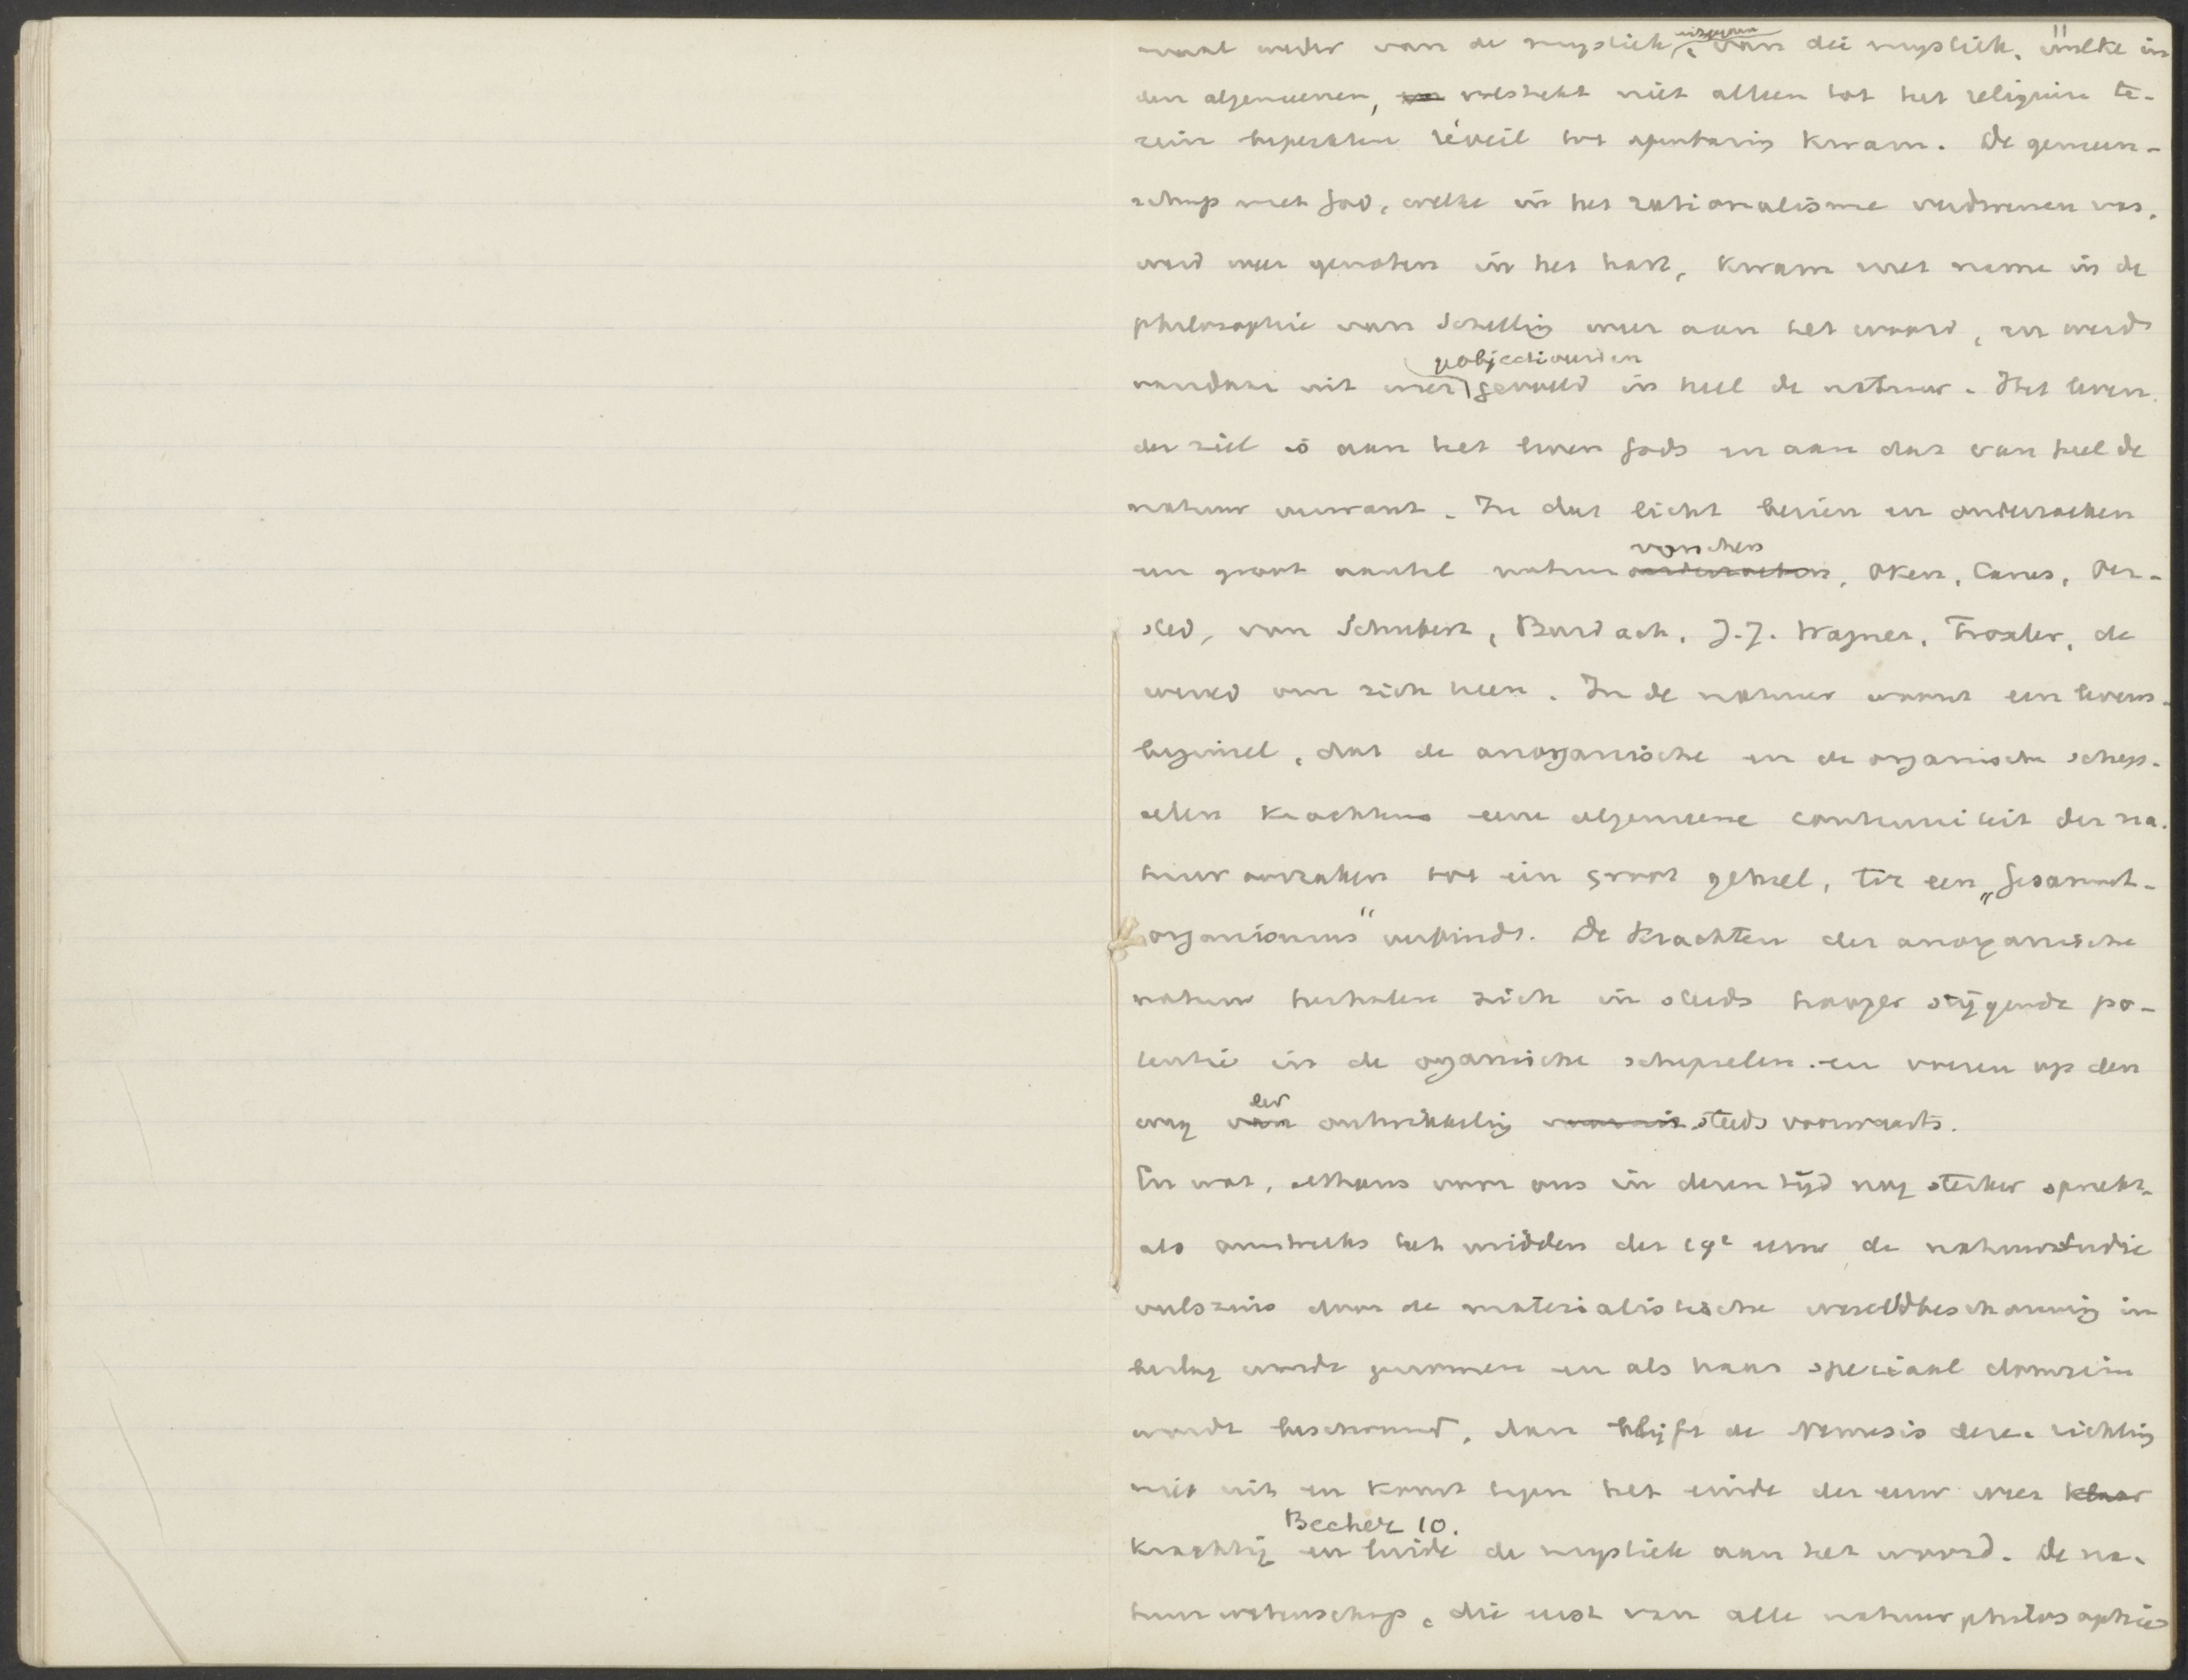 weder van de mystiek, van die mystiek, welke in
den algemeenen, volstrekt niet alleen tot het religieuse te-
rein beperkten réveil tot openbaring kwam. De gemeen-
schap met God, welke in het rationalisme verdwenen was,
werd weer genoten in het hart, kwam met name in de
philosophie van Schelling weer aan het woord, en werd
geobjectiveerd en
vandaar uit weer gevoeld in heel de natuur. Het leven
der ziel is aan het leven Gods en aan dat van heel de
natuur verwant. In dat licht bezien en onderzoeken
vorschers
een groot aantal natuuronderzoekers, Oken, Carus, Oer-
sted, von Schubert, Burdach, J.J. Wagner, Troxler, de
wereld om zich heen. In de natuur woont een levens-
beginsel, dat de anorganische en de organische schep-
selen krachtens eene algemeene continuiteit der na-
tuuroorzaken tot een groot geheel, tot een „Gesammt-
organismus" verbindt. De krachten der anorganische
natuur herhalen zich in steeds hooger stijgende po-
tentie in de organische schepselen en voeren op den
der
weg van ontwikkeling steeds voorwaarts.
En wat, althans voor ons in dezen tijd nog sterker spreekt,
als omstreeks het midden der 19e eeuw de natuurstudie
veelszins door de materialistische wereldbeschouwing in
beslag wordt genomen en als haar speciaal domein
wordt beschouwd, dan blijft de Nemesis dezer richting
niet uit en komt tegen het einde der eeuw weer klaar
Becher 10.
krachtig en luide de mystiek aan het woord. De na-
tuurwetenschap, die eerst van alle natuurphilosophie